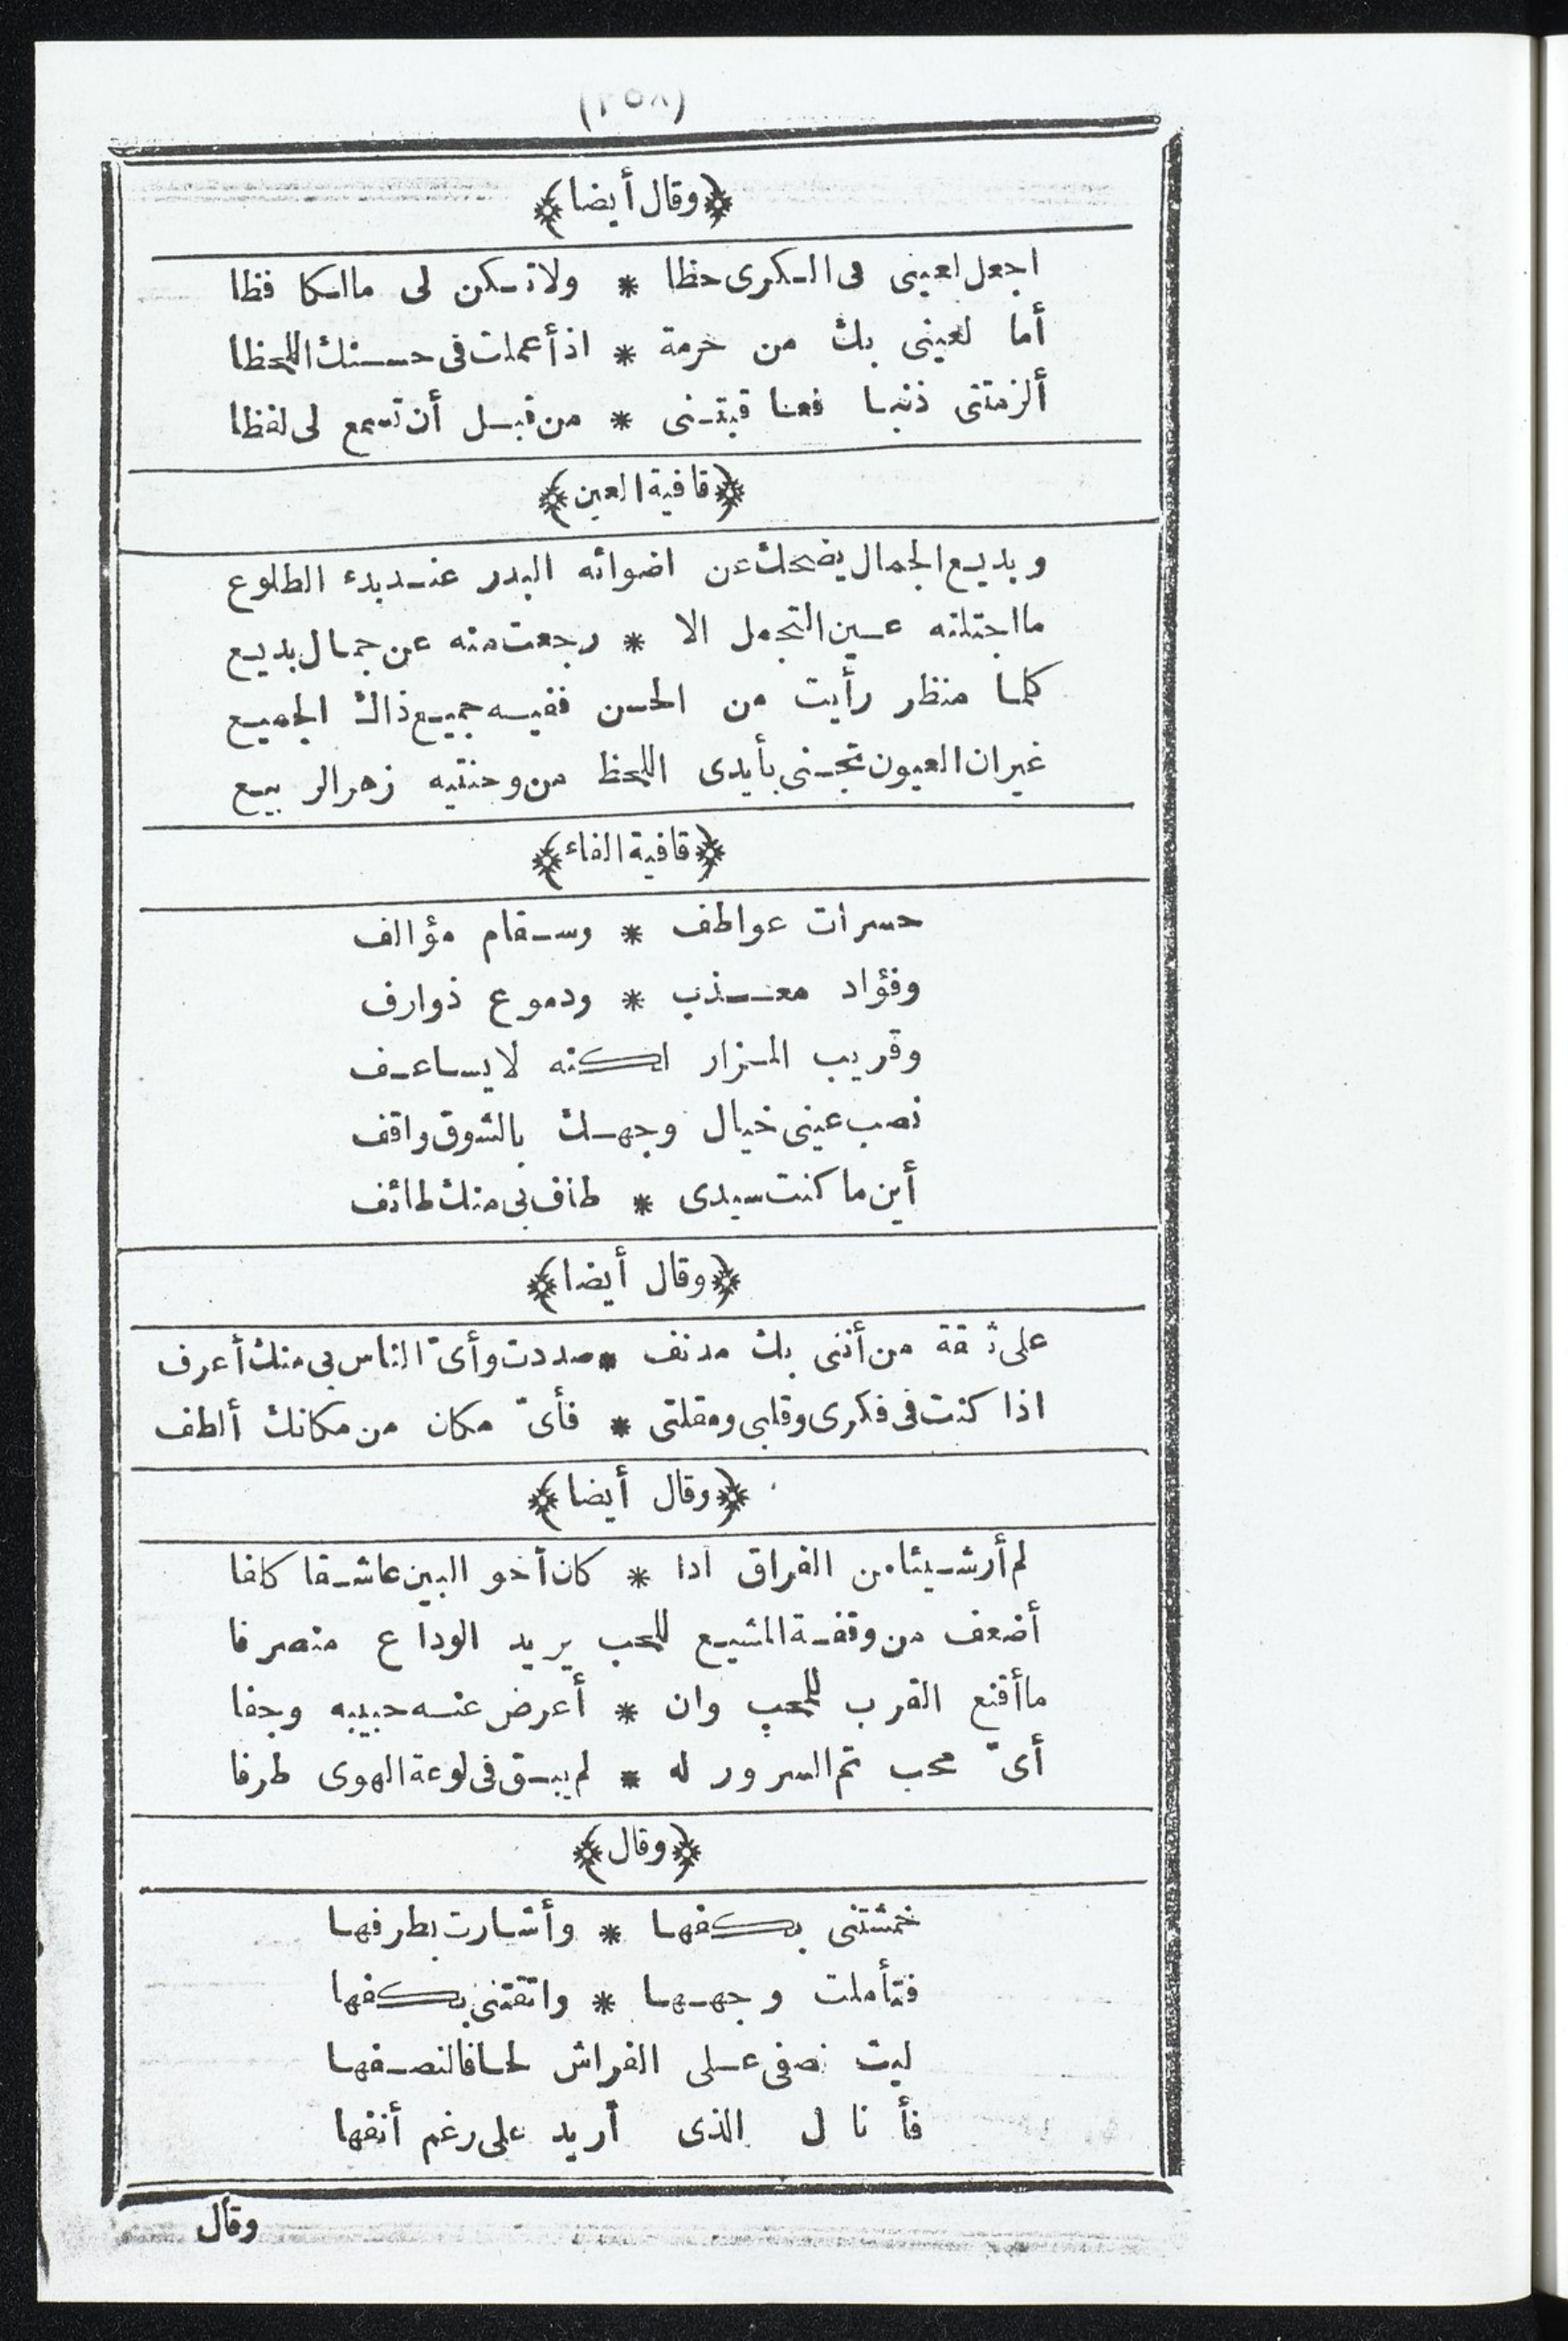 (٢٥٨)
﴿وقال أيضا﴾
اجعل لعينى فى الكرى حظا * ولا تكن لى مالكا فظا
أما لعينى بك من حرمة * اذ أعملت فى حسنك اللحظا
ألزمتنى ذنبا فعاقبتنى * من قبل أن تسمع لى لفظا
﴿قافية العين﴾
وبديع الجمال يضحك عن اضوائه البدر عند بدء الطلوع
ما اجتلته عين التجمل الا * رجعت منه عن جمال بديع
كلما منظر رأيت من الحسن ففيه جميع ذاك الجميع
غير ان العيون تجنى بأيدى اللحظ من وجنتيه زهر الربيع
﴿قافية الفاء﴾
حسرات عواطف * وسقام مؤالف
وفؤاد معذب * ودموع ذوارف
وقريب المزار لكنه لا يساعف
نصب عينى خيال وجهك بالشوق واقف
أين ما كنت سيدى * طاف بى منك طائف
﴿وقال أيضا﴾
على ثقة من أننى بك مدنف * صددت وأىّ الناس بى منك أعرف
اذا كنت فى فكرى وقلبى ومقلتى * فأىّ مكان من مكانك ألطف
﴿وقال أيضا﴾
لم أر شيئا من الفراق اذا * كان أخو البين عاشقا كلفا
أضعف من وقفة المشيع للمحب يريد الوداع منصرفا
ما أقنع القرب للمحب وان * أعرض عنه حبيبه وجفا
أىّ محب تم السرور له * لم يبق فى لوعة الهوى طرفا
﴿وقال﴾
خمشتنى بكفها * وأشارت بطرفها
فتأملت وجهها * واتقتنى بكفها
ليت نصفى على الفراش لحافا لنصفها
فأنال الذى أريد على رغم أنفها
وقال